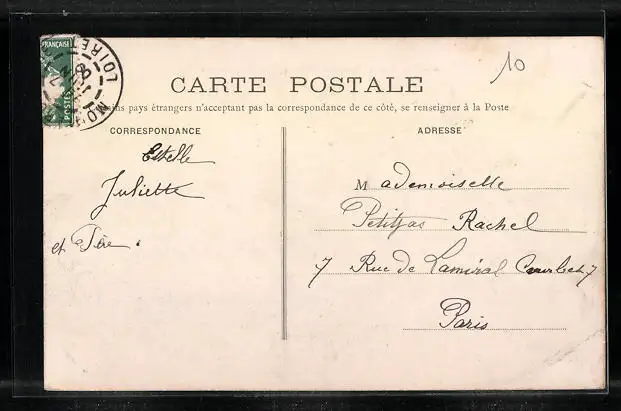 FRANÇAISE
POSTES
LOIRET
10
CARTE POSTALE
pays étrangers n'acceptant pas la correspondance de ce côté, se renseigner à la Poste
CORRESPONDANCE
ADRESSE
Estelle
Juliette
et
Mademoiselle
Petitjas Rachel
7 Rue de Lamiral Courbet 7
Paris